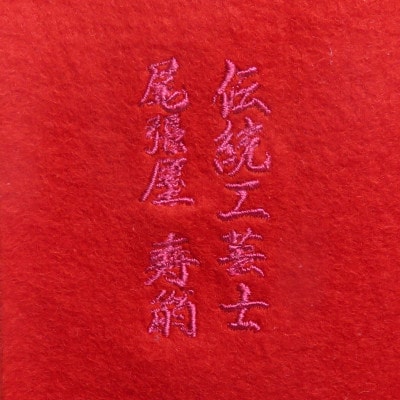 伝統工芸士
尾張屋 寿翁